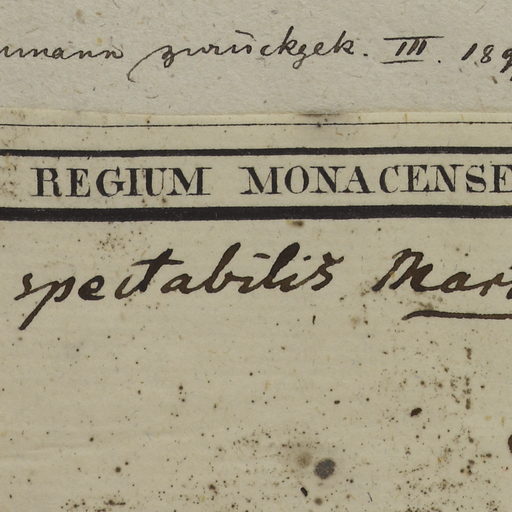 umann zurückgek. III. 189
REGIUM MONACENSE
spectabilis Mart